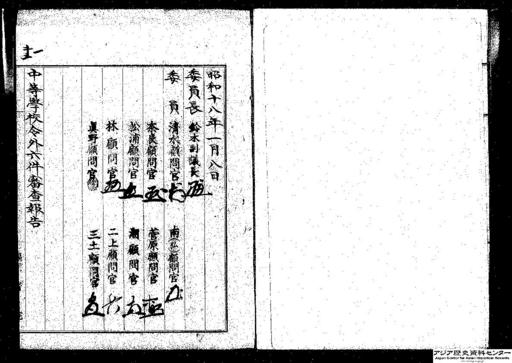 昭和十八年一月八日
委員長 鈴木副議長
委員 清水顧問官 南(弘)顧問官
奈良顧問官 菅原顧問官
松浦顧問官 潮顧問官
林顧問官 二上顧問官
眞野顧問官 三土顧問官
中等學校令外六件審査報告
アジア歴史資料センター
Japan Center for Asian Historical Records